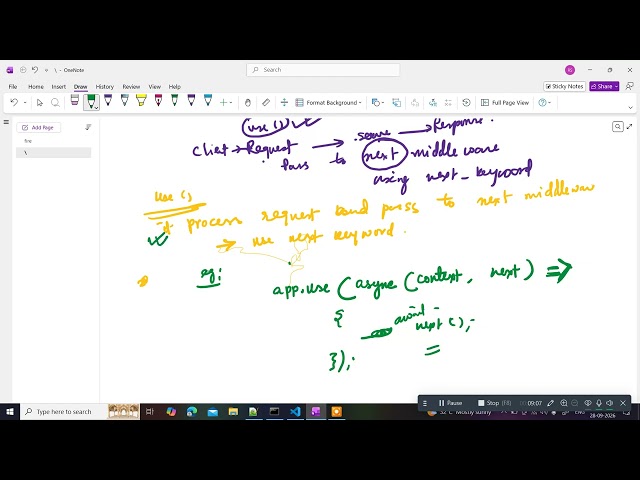 \ - OneNote
Search
RS
File Home Insert Draw History Review View Help
Sticky Notes Share
Format Background Full Page View
Add Page
fire
\
use ()
client → Request → serve → Response.
pass to next middleware
using next - keyword
use ()
it process request and pass to next middlewar
→ use next keyword.
eg:
app.use (async (context, next) =>
{
await
next ();
});
Pause Stop (F8) 09:07
Type here to search
32°C Mostly sunny
28-09-2026